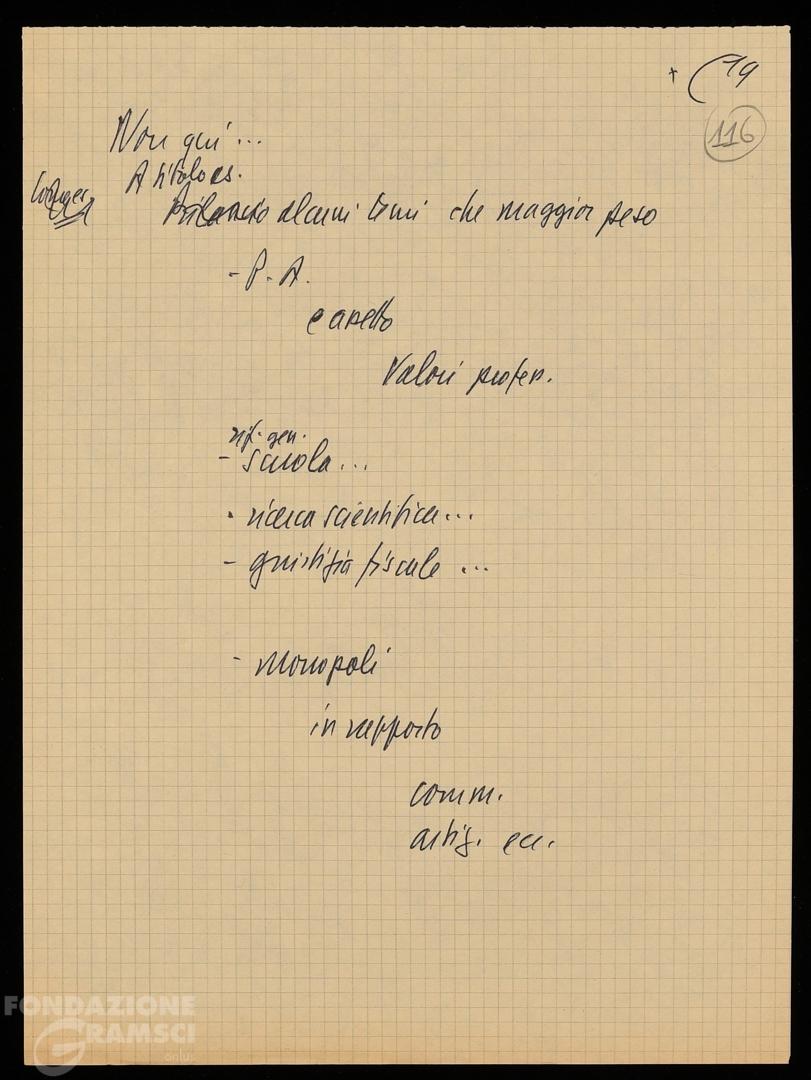 + (19
116
Non qui ...
A titolo es.
Bilancio alcuni temi che maggior peso
- P. A.
e assetto
Valori profess.
rif. gen.
- scuola ...
- ricerca scientifica ...
- giustizia fiscale ...
- Monopoli
in rapporto
comm.
artig. ecc.
FONDAZIONE
GRAMSCI
onlus